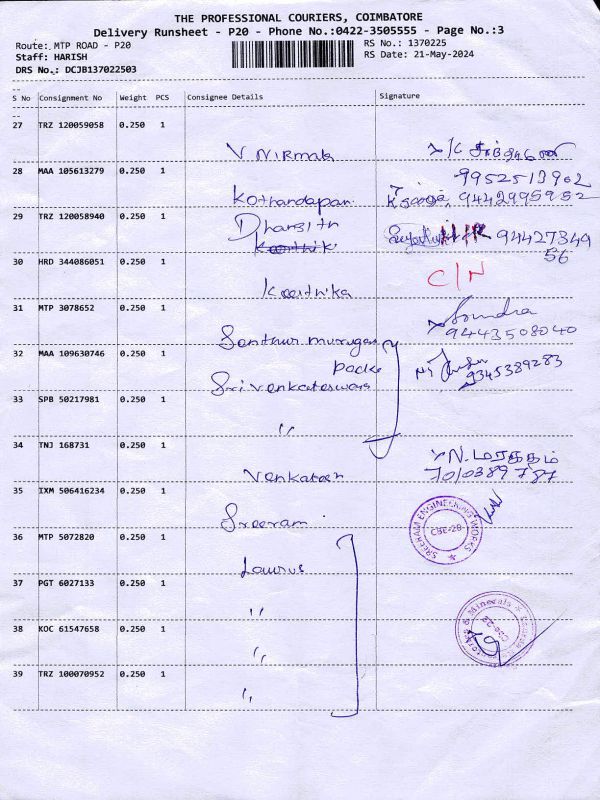 THE PROFESSIONAL COURIERS, COIMBATORE
Delivery Runsheet - P20 - Phone No.:0422-3505555 - Page No.:3
Route: MTP ROAD - P20
RS No.: 1370225
Staff: HARISH
RS Date: 21-May-2024
DRS No.: DCJB137022503
S No Consignment No Weight PCS Consignee Details Signature
27 TRZ 120059058 0.250 1
V Nirmala
28 MAA 105613279 0.250 1
9952513902
Kothandapan 9442995952
29 TRZ 120058940 0.250 1
Dharsith 94427349
56
30 HRD 344086051 0.250 1
C/N
Keerthika
31 MTP 3078652 0.250 1
9443508040
Senthur murugan
32 MAA 109630746 0.250 1
Packs
9345389283
Sri Venkateswara
33 SPB 50217981 0.250 1
"
34 TNJ 168731 0.250 1
N. மரகதம்
Venkatesh 7010389787
35 IXM 506416234 0.250 1
Sreeram
SREERAM ENGINEERING WORKS
CBE-28
36 MTP 5072820 0.250 1
Laurus
37 PGT 6027133 0.250 1
"
38 KOC 61547658 0.250 1
& Minerals
"
39 TRZ 100070952 0.250 1
"